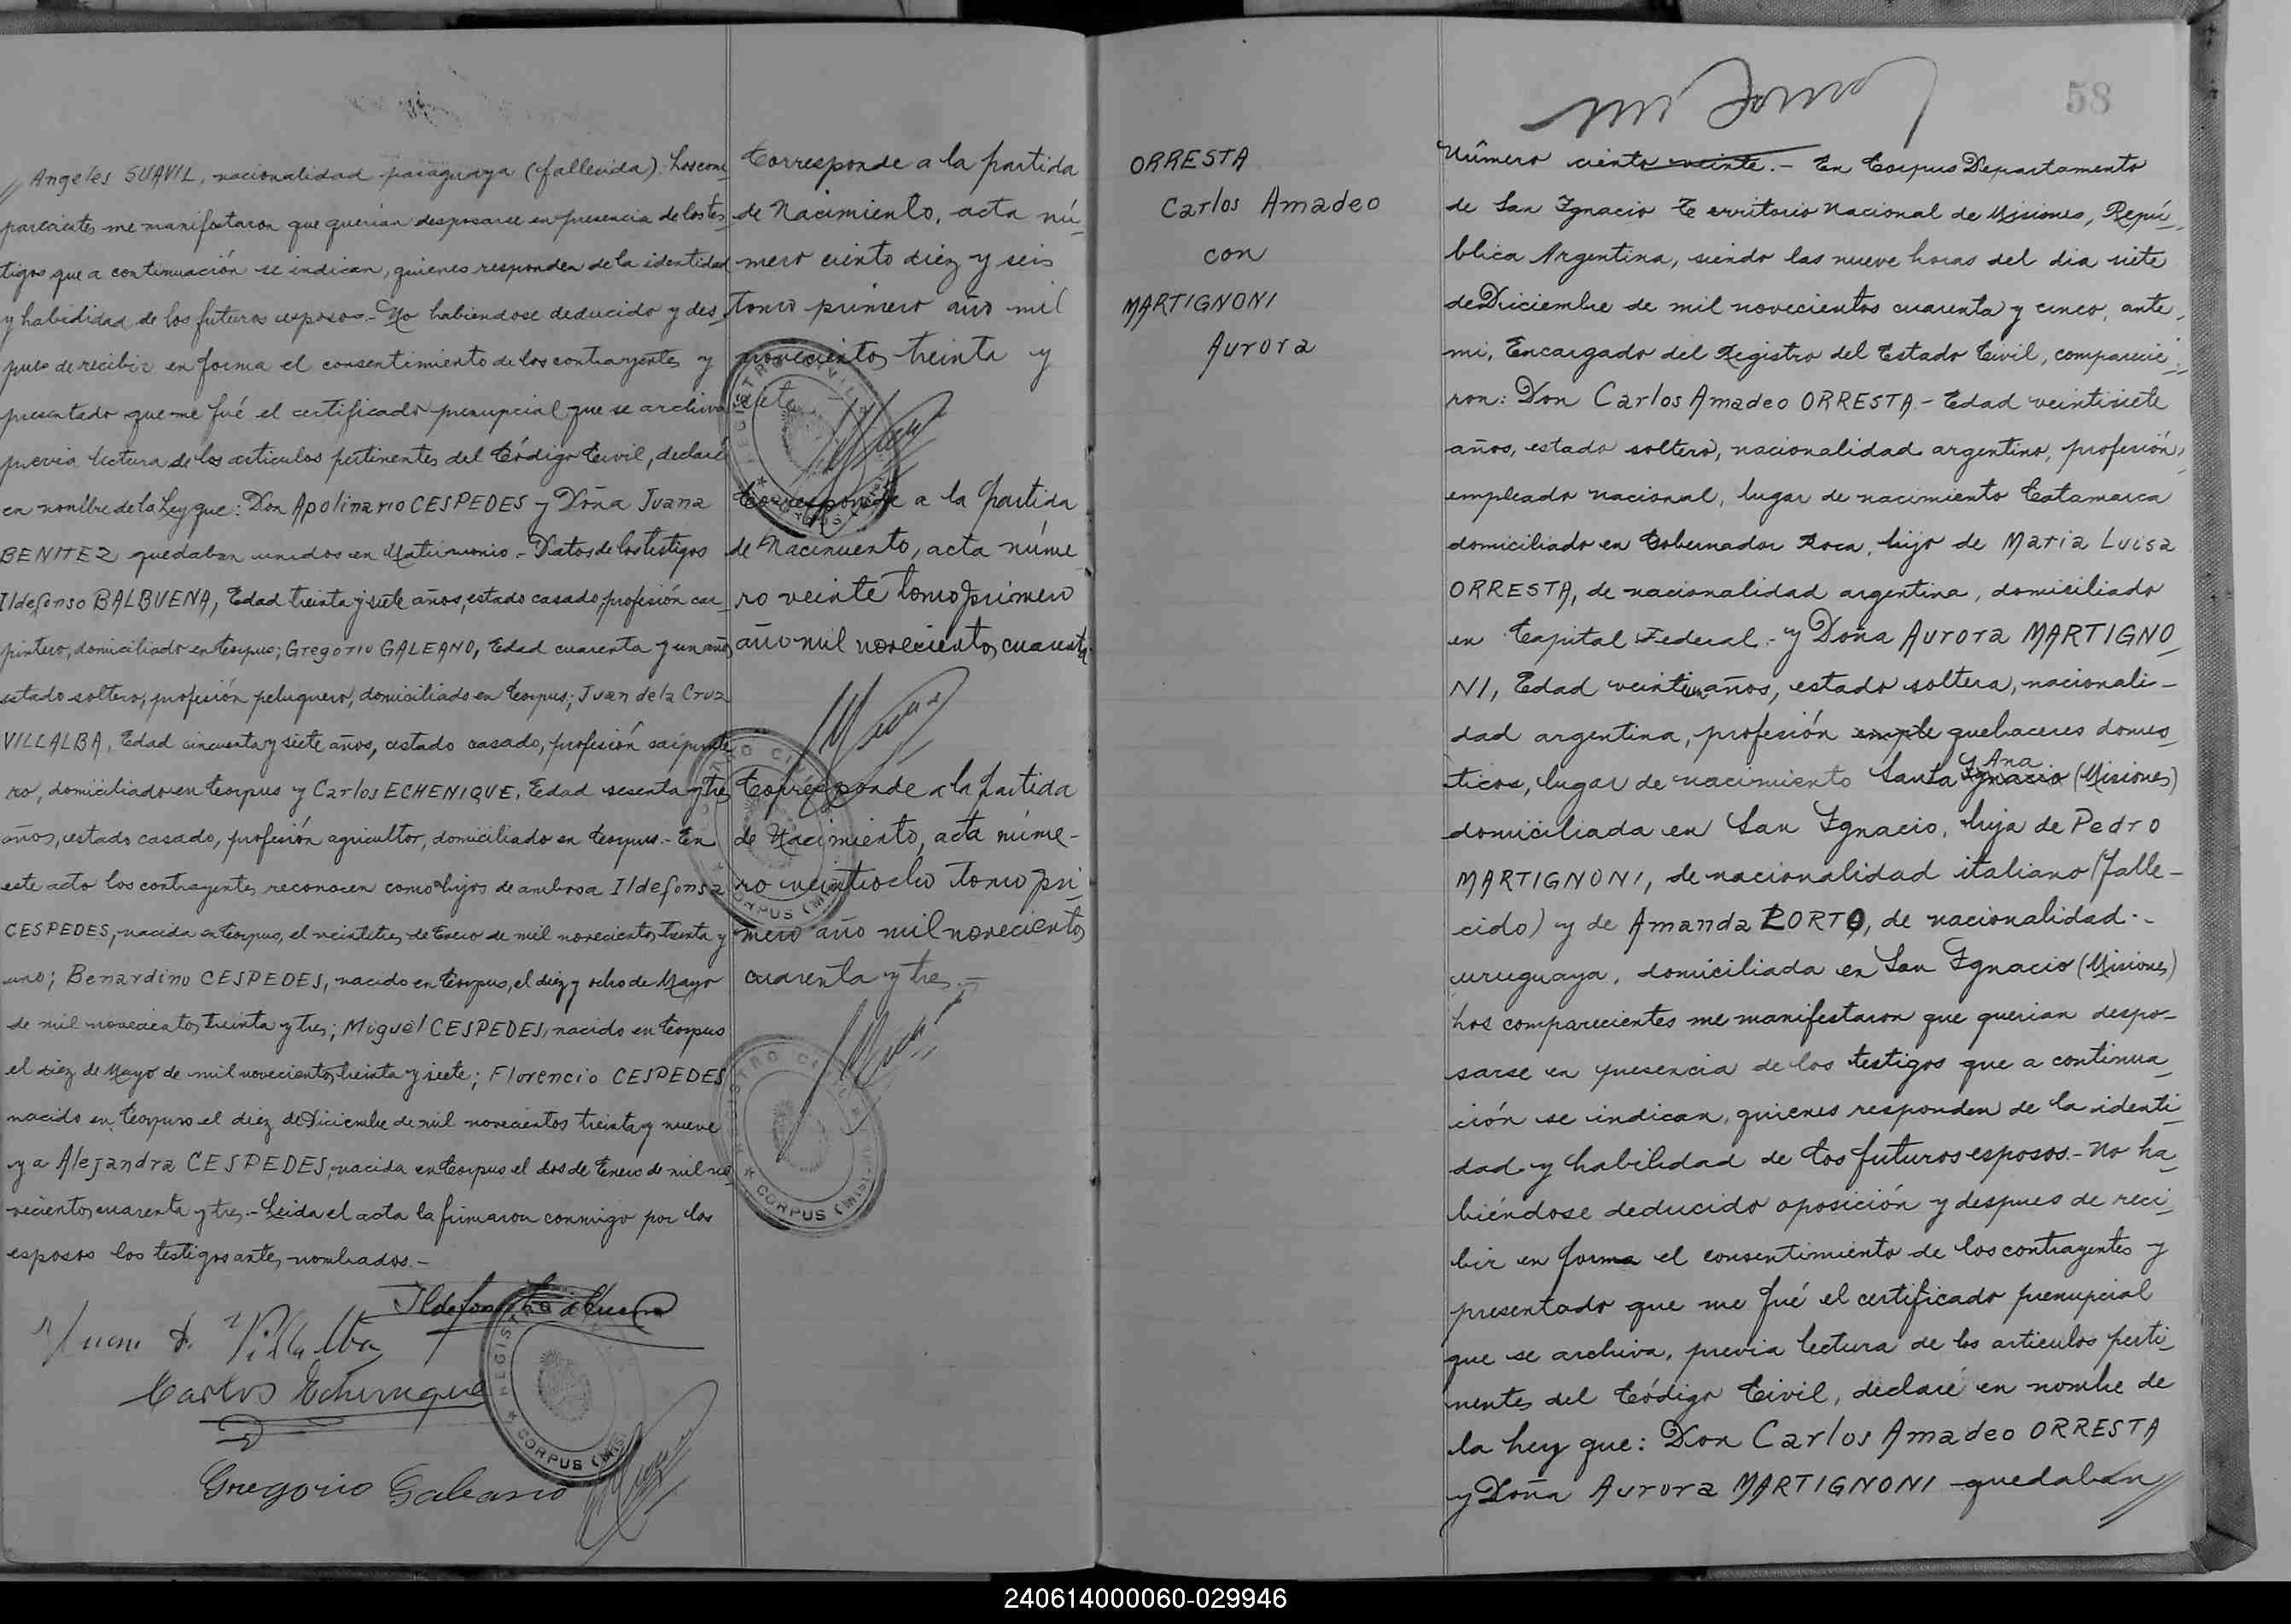 // Angeles SUAVIL, nacionalidad paraguaya (fallecida). Los com-
parecientes me manifestaron que querían desposarse en presencia de los tes-
tigos que a continuación se indican, quienes responden de la identidad
y habilidad de los futuros esposos.- No habiendose deducido y des-
pues de recibir en forma el consentimiento de los contrayentes y
presentado que me fué el certificado prenupcial que se archiva
previa lectura de los articulos pertinentes del Código Civil, declaré
en nombre de la Ley que: Don Apolinario CESPEDES y Doña Juana
BENITEZ quedaban unidos en Matrimonio.- Datos de los testigos
Ildefonso BALBUENA, Edad treinta y siete años, estado casado, profesión car-
pintero, domiciliado en Corpus; Gregorio GALEANO, Edad cuarenta y un años
estado soltero, profesión peluquero, domiciliado en Corpus; Juan de la Cruz
VILLALBA, Edad cincuenta y siete años, estado casado, profesión carpinte-
ro, domiciliado en Corpus y Carlos ECHENIQUE, Edad sesenta y tres
años, estado casado, profesión agricultor, domiciliado en Corpus.- En
este acto los contrayentes reconocen como hijos de ambos a Ildefonsa
CESPEDES, nacida en Corpus, el veintitres de Enero de mil novecientos treinta y
uno; Benardino CESPEDES, nacido en Corpus, el diez y ocho de Mayo
de mil novecientos treinta y tres; Miguel CESPEDES, nacido en Corpus
el diez de Mayo de mil novecientos treinta y siete; Florencio CESPEDES
nacido en Corpus el diez de Diciembre de mil novecientos treinta y nueve
y a Alejandra CESPEDES, nacida en Corpus el dos de Enero de mil no-
vecientos cuarenta y tres.- Leida el acta la firmaron conmigo por los
esposos los testigos antes nombrados.-
Ildefonso Balbuena
Juan d. Villalba
Carlos Echenique
Gregorio Galeano
REGISTRO CIVIL
CORPUS (MIS)
Corresponde a la partida
de Nacimiento, acta nú-
mero ciento diez y seis
tomo primero año mil
novecientos treinta y
siete
REGISTRO CIVIL
Corresponde a la partida
de Nacimiento, acta núme
ro veinte tomo primero
año mil novecientos cuarenta
Corresponde a la partida
de Nacimiento, acta núme-
ro veintiocho tomo pri
mero año mil novecientos
cuarenta y tres.-
REGISTRO CIVIL
CORPUS (MISIONES)
58
ORRESTA
Carlos Amadeo
con
MARTIGNONI
Aurora
Número ciento veinte.- En Corpus Departamento
de San Ignacio Territorio Nacional de Misiones, Repú-
blica Argentina, siendo las nueve horas del dia siete
de Diciembre de mil novecientos cuarenta y cinco, ante
mi, Encargado del Registro del Estado Civil, comparecie-
ron: Don Carlos Amadeo ORRESTA.- Edad veintisiete
años, estado soltero, nacionalidad argentino, profesión,
empleado nacional, lugar de nacimiento Catamarca
domiciliado en Gobernador Roca, hijo de Maria Luisa
ORRESTA, de nacionalidad argentina, domiciliado
en Capital Federal.- y Doña Aurora MARTIGNO
NI, Edad veintiun años, estado soltera, nacionali-
dad argentina, profesión emple quehaceres domes-
ticos, lugar de nacimiento Santa Ignacio Ana (Misiones)
domiciliada en San Ignacio, hija de Pedro
MARTIGNONI, de nacionalidad italiano (falle-
cido) y de Amanda PORTO, de nacionalidad.-
uruguaya, domiciliada en San Ignacio (Misiones)
Los comparecientes me manifestaron que querian despo-
sarse en presencia de los testigos que a continua-
ción se indican, quienes responden de la identi-
dad y habilidad de los futuros esposos.- No ha-
biéndose deducido oposición y despues de reci-
bir en forma el consentimiento de los contrayentes y
presentado que me fué el certificado prenupcial
que se archiva, previa lectura de los articulos perti-
nentes del Código Civil, declaré en nombre de
la Ley que: Don Carlos Amadeo ORRESTA
y Doña Aurora MARTIGNONI quedaban //
240614000060-029946